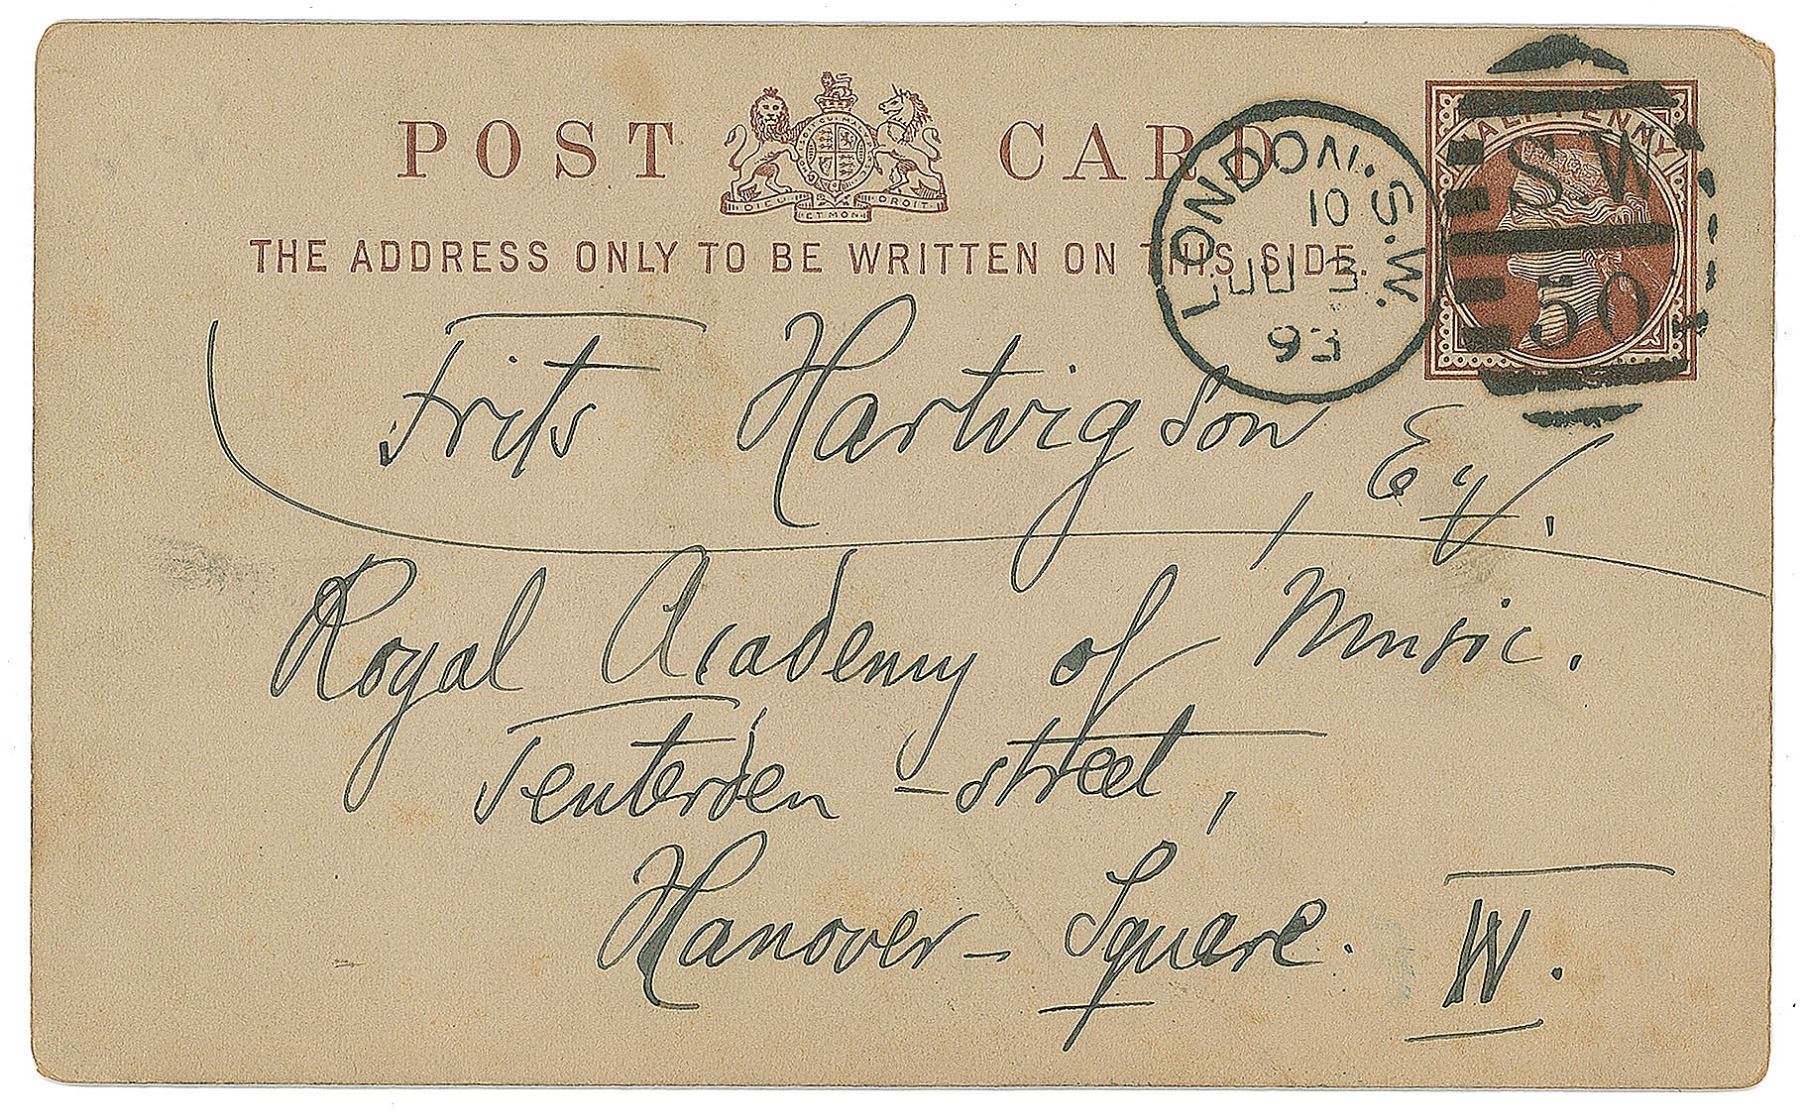 POST CARD
DIEU ET MON DROIT
THE ADDRESS ONLY TO BE WRITTEN ON THIS SIDE.
HALFPENNY
LONDON.S.W.
10
JU 5
93
S.W
50
Frits Hartvigson, Esq.
Royal Academy of Music.
Tenterden-street,
Hanover-Square. W.